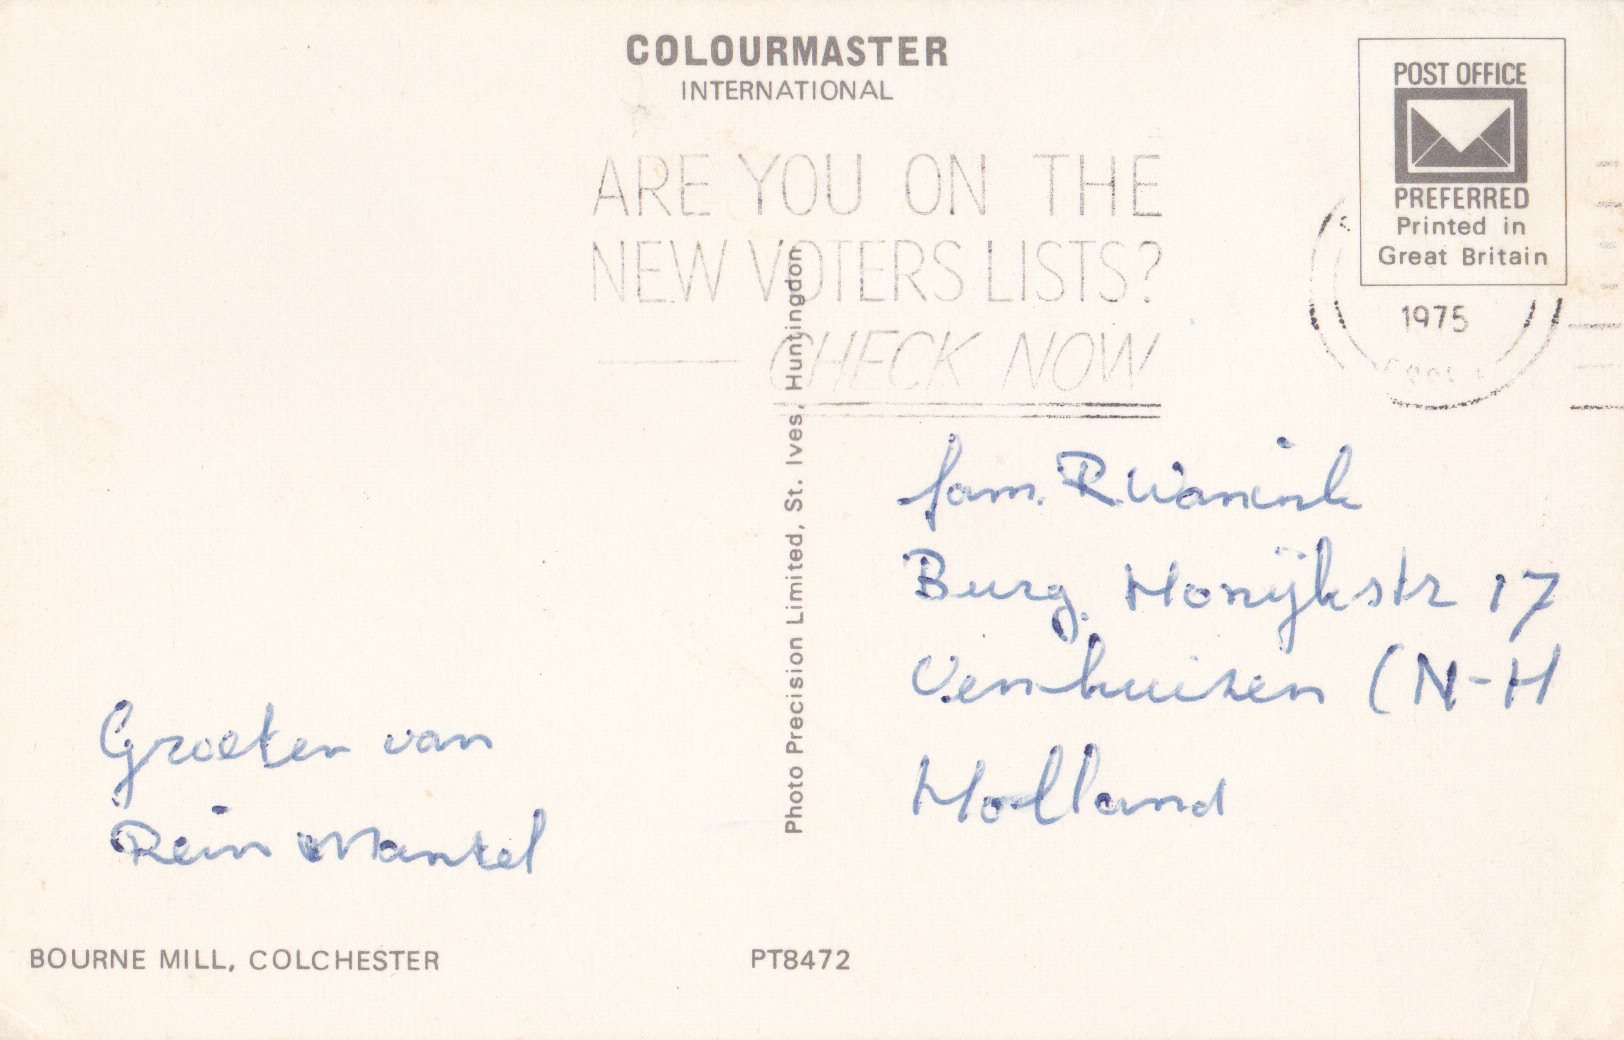 COLOURMASTER
INTERNATIONAL
POST OFFICE
PREFERRED
Printed in
Great Britain
ARE YOU ON THE
NEW VOTERS LISTS?
CHECK NOW
1975
Photo Precision Limited, St. Ives, Huntingdon
fam. R Wanink
Burg. Honijkstr 17
Venhuizen (N-H
Holland
Groeten van
Rein Mantel
BOURNE MILL, COLCHESTER
PT8472